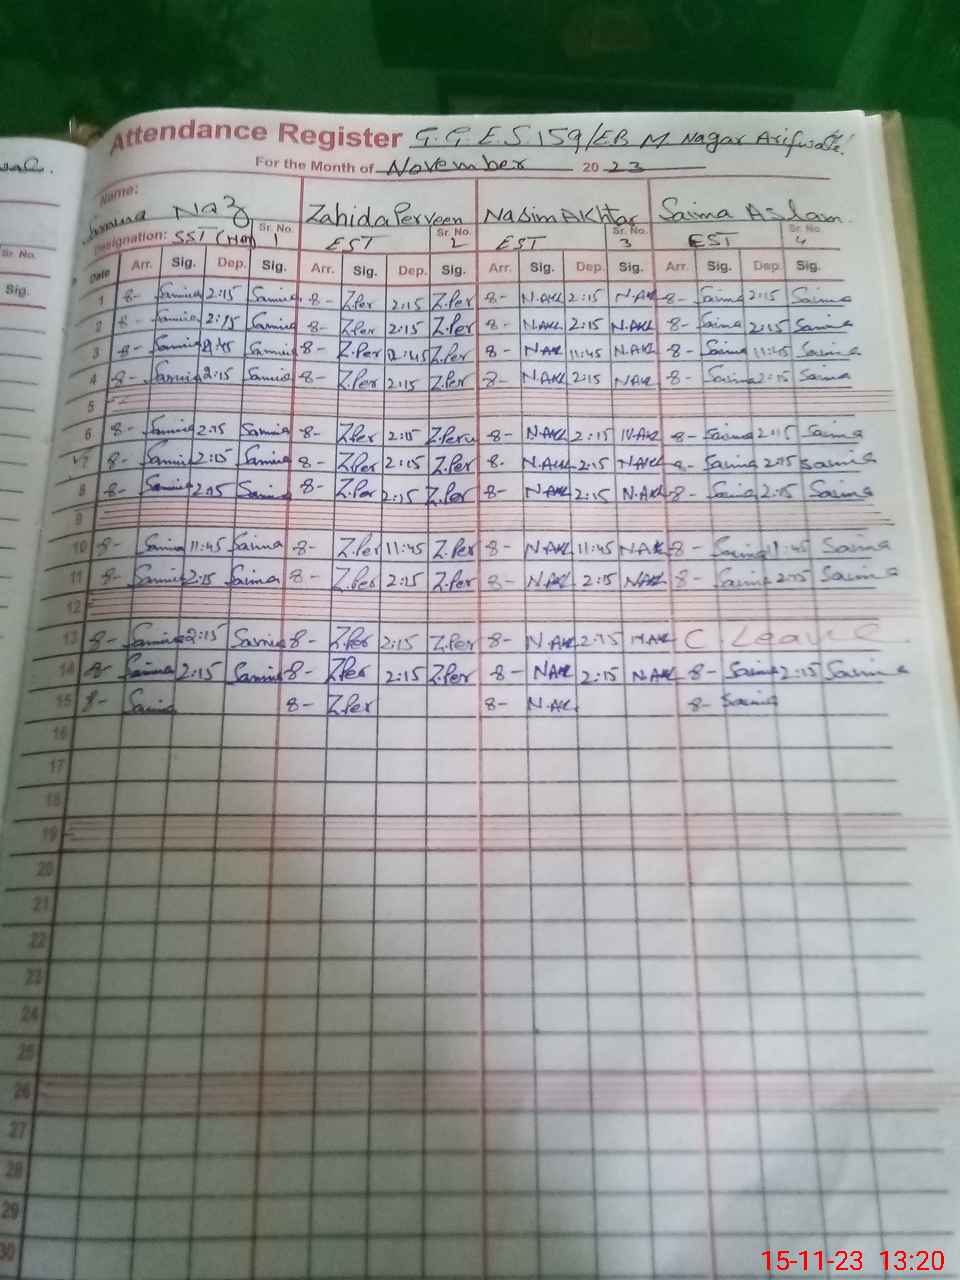 Attendance Register G.G.E.S. 159/EB M. Nagar Arifwala
For the Month of November 2023
Name:
Naz Zahida Perveen Nasim Akhtar Saima Aslam
Designation: SST (HM) Sr. No. 1 EST Sr. No. 2 EST Sr. No. 3 EST Sr. No. 4
Sr. No.
Date Arr. Sig. Dep. Sig. Arr. Sig. Dep. Sig. Arr. Sig. Dep. Sig. Arr. Sig. Dep. Sig.
Sig.
1 8- Samina 2:15 Samina 8- Z.Per 2:15 Z.Per 8- N.AKL 2:15 N.AK 8- Saima 2:15 Saima
2 8- Samina 2:15 Samina 8- Z.Per 2:15 Z.Per 8- N.AKL 2:15 N.AKL 8- Saima 2:15 Saima
3 8- Samina 11:45 Samina 8- Z.Per 11:45 Z.Per 8- N.AK 11:45 N.AKL 8- Saima 11:45 Saima
4 8- Samina 2:15 Samina 8- Z.Per 2:15 Z.Per 8- N.AKL 2:15 N.AKL 8- Saima 2:15 Saima
5
6 8- Samina 2:15 Samina 8- Z.Per 2:15 Z.Per 8- N.AKL 2:15 N.AKL 8- Saima 2:15 Saima
7 8- Samina 2:15 Samina 8- Z.Per 2:15 Z.Per 8- N.AKL 2:15 N.AKL 8- Saima 2:15 Saima
8 8- Samina 2:15 Samina 8- Z.Per 2:15 Z.Per 8- N.AKL 2:15 N.AKL 8- Saima 2:15 Saima
9
10 8- Samina 11:45 Samina 8- Z.Per 11:45 Z.Per 8- N.AKL 11:45 N.AKL 8- Saima 11:45 Saima
11 8- Samina 2:15 Samina 8- Z.Per 2:15 Z.Per 8- N.AKL 2:15 N.AKL 8- Saima 2:15 Saima
12
13 8- Samina 2:15 Samina 8- Z.Per 2:15 Z.Per 8- N.AKL 2:15 N.AKL C. Leave
14 8- Samina 2:15 Samina 8- Z.Per 2:15 Z.Per 8- N.AKL 2:15 N.AKL 8- Saima 2:15 Saima
15 8- Samina 8- Z.Per 8- N.AKL 8- Saima
16
17
18
19
20
21
22
23
24
25
26
27
28
29
30
15-11-23 13:20